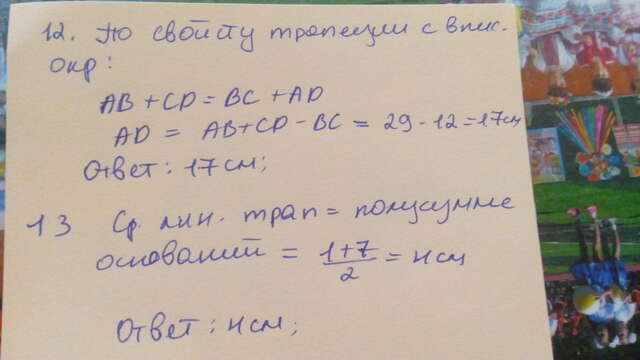 12. По свойсту трапеции с впис.
окр:
AB + CD = BC + AD
AD = AB+CD - BC = 29 - 12 = 17см
Ответ: 17см;
13 Ср. лин. трап = полусумме
оснований = \frac{1+7}{2} = 4см
Ответ: 4см;